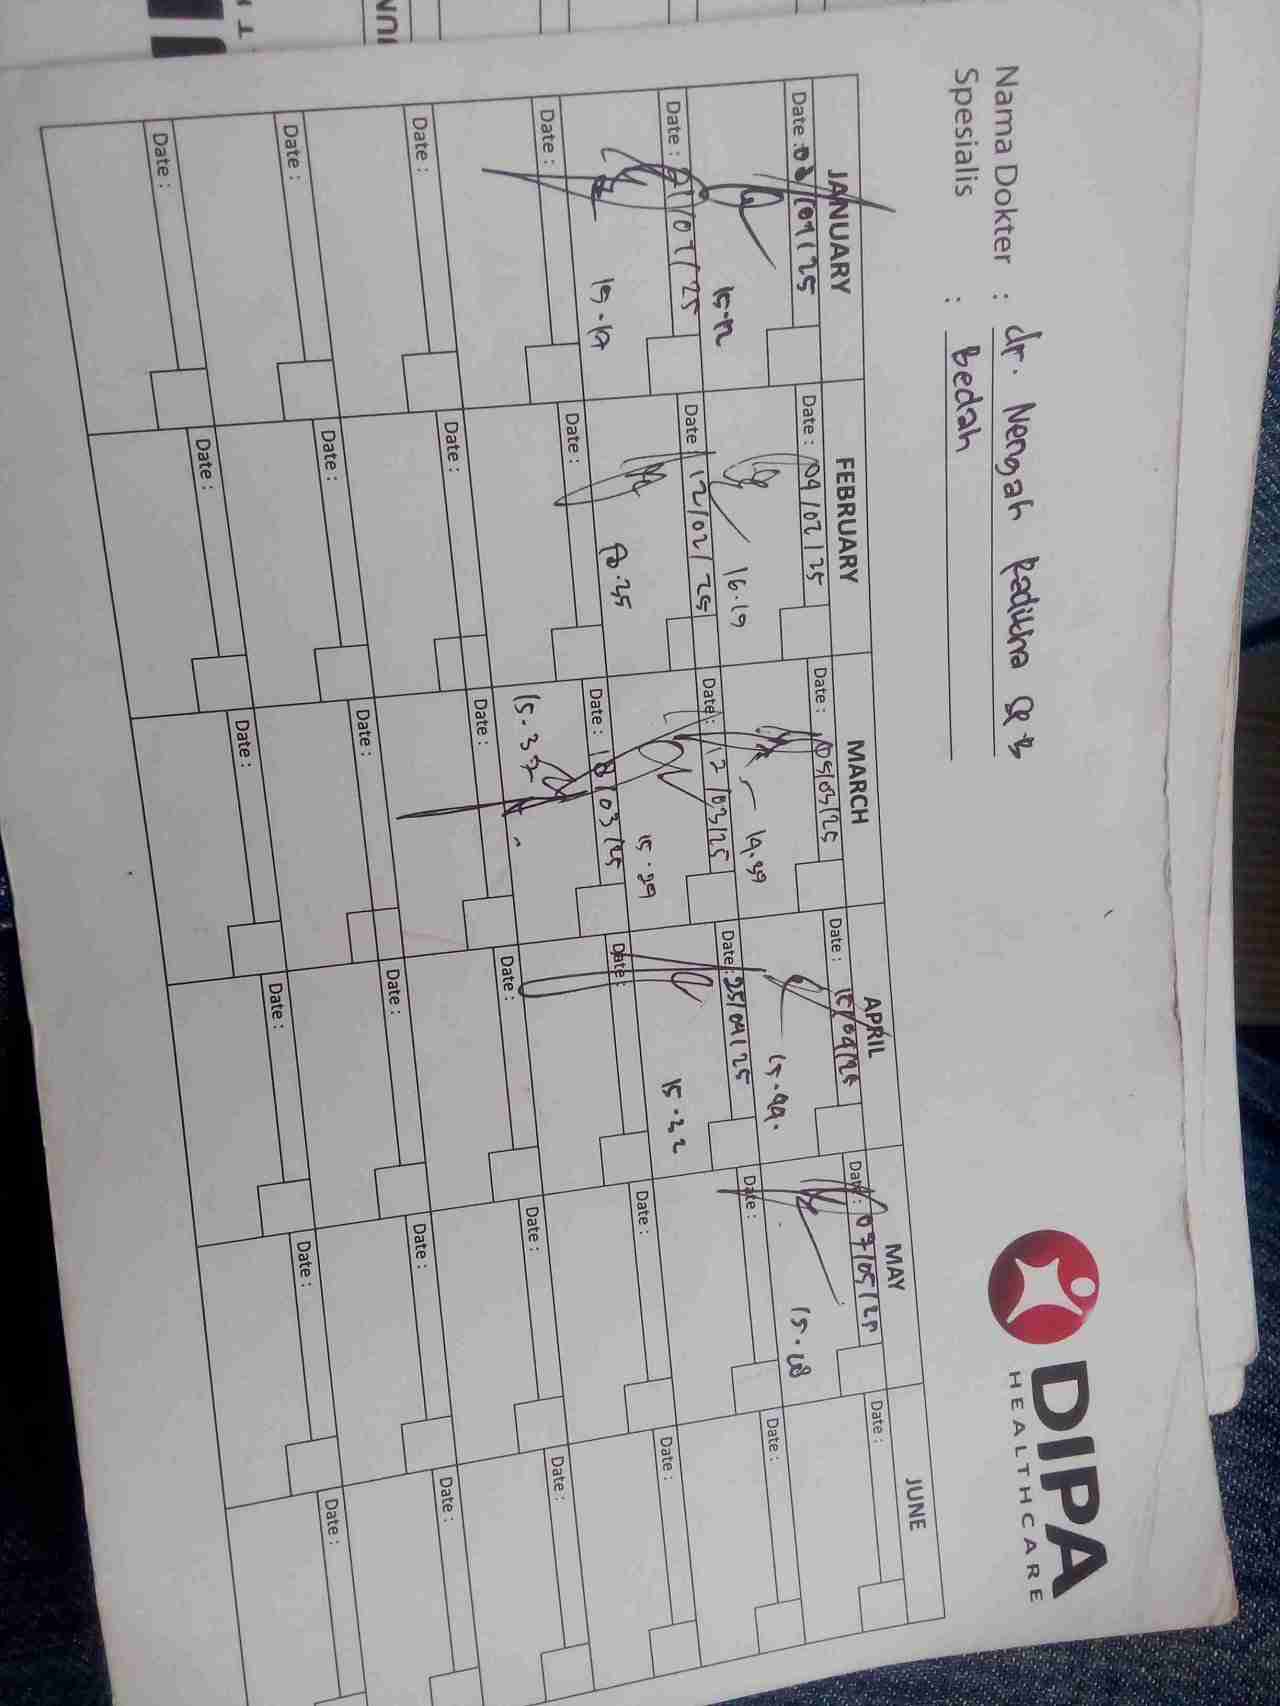 DIPA
HEALTHCARE
Nama Dokter : dr. Nengah
Spesialis : Bedah
JANUARY FEBRUARY MARCH APRIL MAY JUNE
Date : /25 Date : 04/02/25 Date : 05/03/25 Date : /04/25 Date : 07/05/25 Date :
15.12 16.19 14.39 15.44. 15.28
Date : 21/01/25 Date : 12/02/25 Date : 12/03/25 Date : 25/04/25 Date : Date :
15.29 15.32
Date : Date : Date : 18/03/25 Date : Date : Date :
15.37
Date : Date : Date : Date : Date : Date :
Date : Date : Date : Date : Date : Date :
Date : Date : Date : Date : Date : Date :